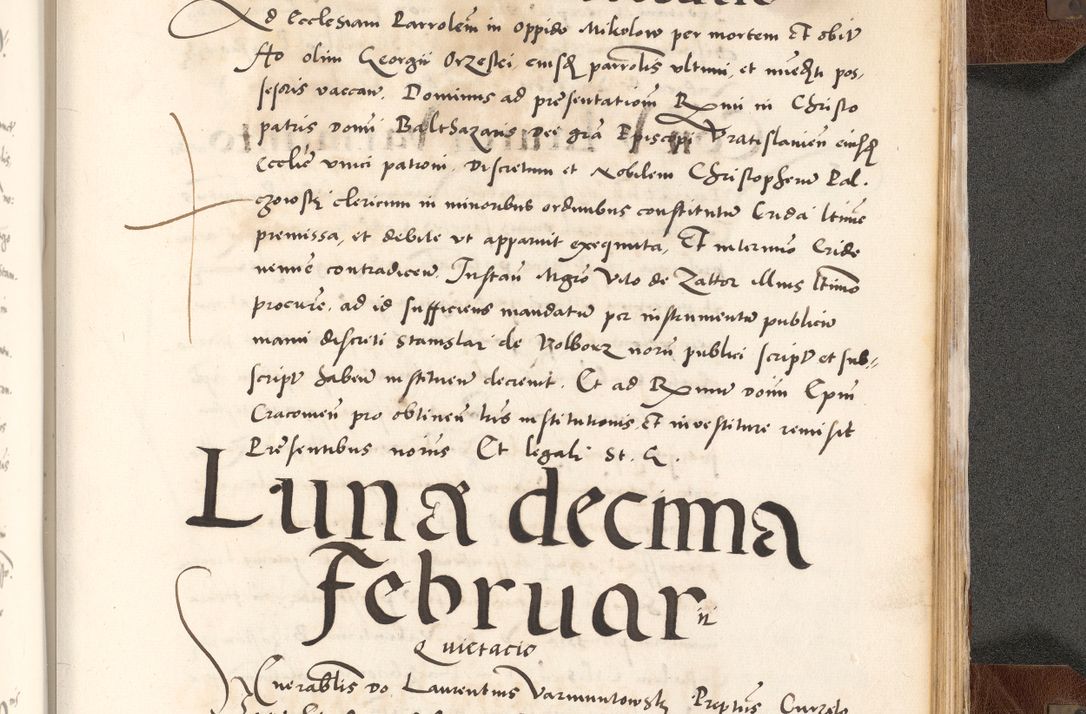 Ad Ecclesiam Parrolem in oppido Mikolow per mortem Et obit
Ho olim Georgii Orzeski eiusq parrolis ultimi, et immediti pos-
sesoris vaccan. Dominus ad presentationem Rmi in Christo
patris domi Balthazaris Dei gra Episcopi Vratislavien eiusq
Ecclie unici patroni. Discretum et Nobilem Christopherum Pal.
czowski clericum in minoribus ordinibus constitutum Crida ltime
premissa, et debite ut apparuit exequuta, Et in termino Cride
nemine contradicen. Instan Mgro Vito de Zattor illius ltimo
procure. ad id sufficiens mandatum per instrumentum publicum
manu discreti Stanislai de Wolborz norii publici script et sub-
script haben instituen decrevit. Et ad Rmum domi Epm
Cracovien pro obtinen lris institutionis, Et investiture remisit
Presentibus noriis Et legali St. G.
Luna decima
Februarii
Quietacio
Venerablis Do. Laurentius Varmuntowski Preptus Curzelo